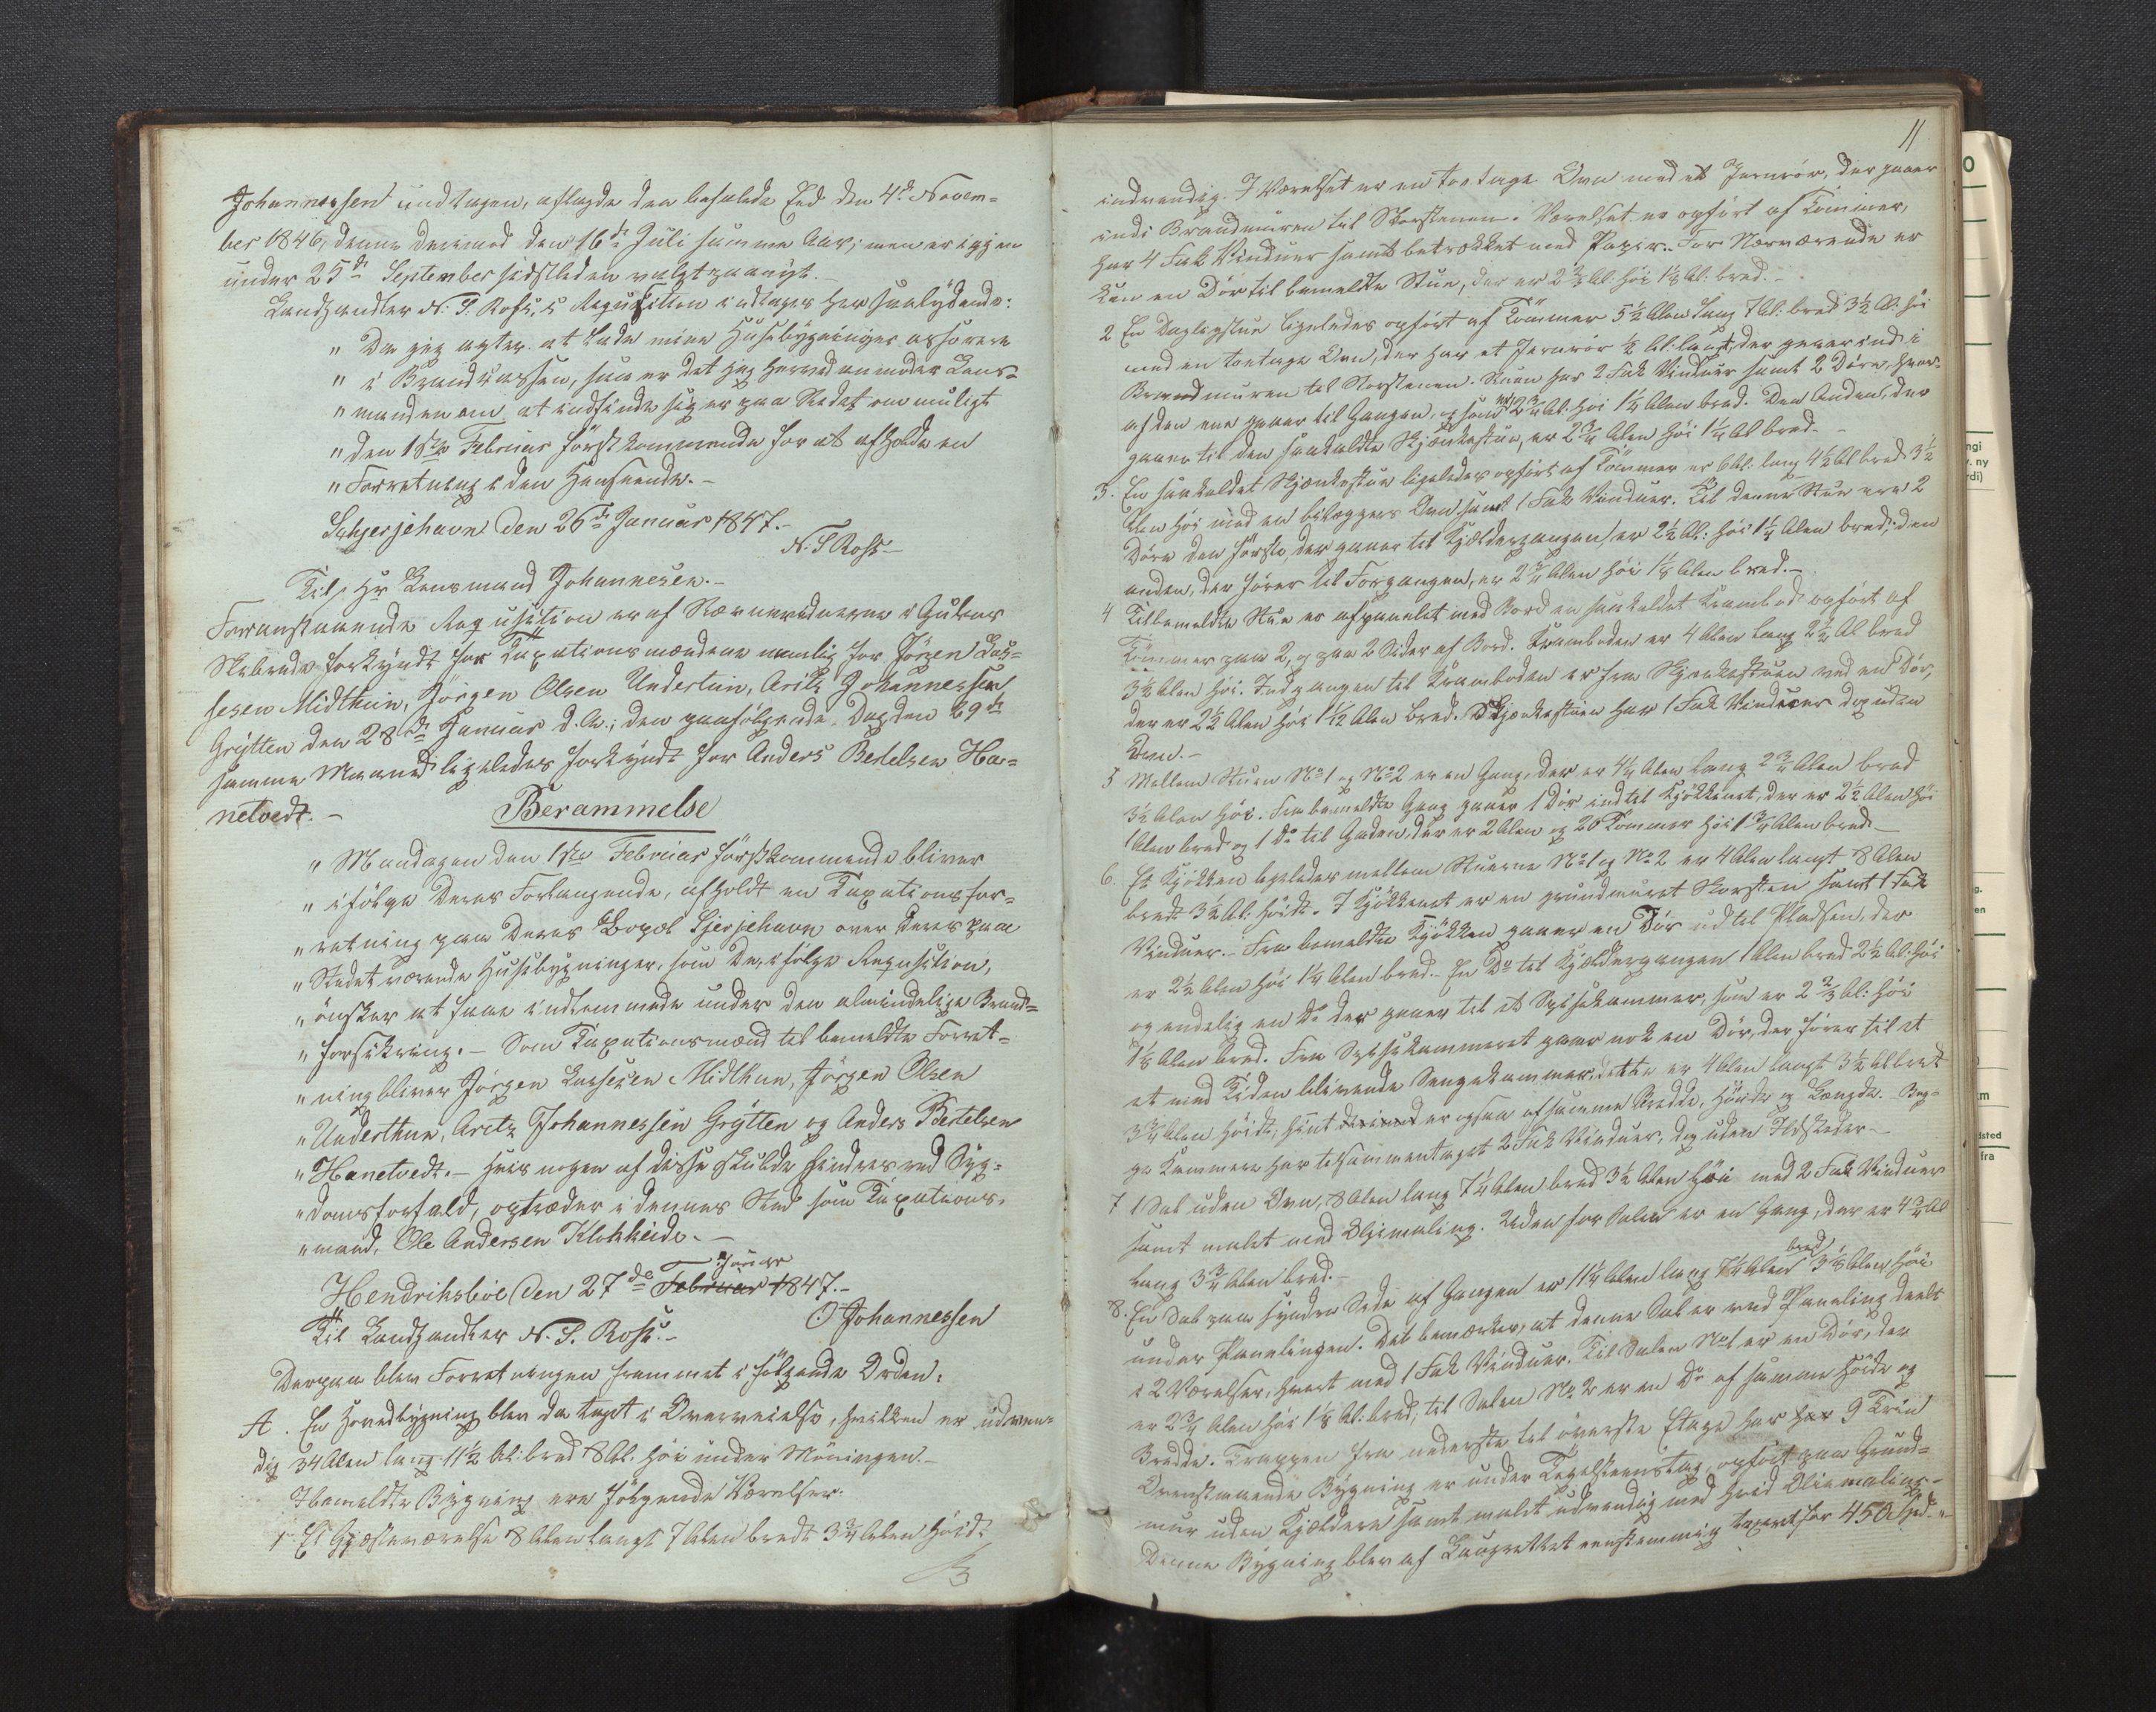 Johannessen undtagen, aflagde den befalede Eed den 4de Novem=
ber 1846, denne derimod den 16de Juli samme Aar; men er igjen
under 25de September sidstleden valgt paanyt.
Landhandler N. S. Ross,s Requisition indtages her saalydende:
" Da jeg agter at lade mine Huusbygninger assurere
" i Brandkassen, saa er det jeg herved anmoder Lens=
" manden om at indfinde sig er paa Stedet om muligt
" den 1ste Februar förstkommende for at afholde en
" Forretning i den Henseende.–
Schjerjehavn den 26de Januar 1847.–
N. S Ross–
Til Hr Lensmand Johannesen.–
Forranstaaende Requisition er af Stævnevidnerne i Gulens
Skibrede forkyndt for Taxationsmændene nemlig for Jörgen Las=
sesen Midthun, Jörgen Olsen Undertun, Aritz Johannessen
Grytten den 28de Januar d. A.; den paafölgende Dag den 29de
samme Maaned ligeledes forkyndt for Anders Bertelsen Ha=
netvedt.–
Berammelse
" Mandagen den 1ste Februar förstkommende bliver
" ifölge Deres Forlangende, afholdt en Taxationsfor=
" retning paa Deres Bopæl Sjerjehavn over Deres paa
" Stedet værende Huusbygninger, som De, ifölge Requisition,
" önsker at faae indlemmede under den almindelige Brand=
" forsikring.– Som Taxationsmænd til bemeldte Forret=
" ning bliver Jörgen Lassesen Midthun, Jörgen Olsen
" Underthun, Aritz Johannessen Grytten og Anders Bertelsen
" Hanetvedt.– Hvis nogen af disse skulde hindres ved Syg=
" domsforfald, optræder i dennes Sted som Taxations=
" mand, Ole Andersen Klokkeide.–
Januar
Hendriksböe den 27de Februar 1847.–
O Johannessen
Til Landhandler N. S. Ross.–
Derpaa blev Forretningen fremmet i fölgende Orden:
A. En Hovedbygning blev da taget i Overveielse, hvilken er udven=
dig 34 Alen lang 11½ Al: bred 8 Al. höi under Möningen.–
I bemeldte Bygning ere fölgende Værelser:
1 Et Gjæsteværelse 8 Alen langt 7 Alen bredt 3¾ Alen höidt
11
indvendig. I Værelset er en toetage Ovn med et Jernrör, der gaaer
ind i Brandmuren til Skorstenen. Værelset er opfört af Tömmer,
har 4 Fak Vinduer samt betrækket med Papir. For Nærværende er
kun en Dör til bemeldte Stue, der er 2¾ Al: höi 1⅛ Al: bred.–
2 En Dagligstue ligeledes opfört af Tömmer 5½ Alen lang 7 Al: bred 3½ Al: höi
med en toetage Ovn, der har et Jernrör ½ Al: langt, der gaaer ind i
Brandmuren til Skorstenen. Stuen har 2 Fak Vinduer samt 2 Döre, hvor=
af den ene gaaer til Gangen, og som er 2¾ Al: höi 1¼ Alen bred. Den Anden, der
gaaer til den saakaldte Skjænkestue, er 2¾ Alen höi 1¼ Al bred.–
3. En saakaldet Skjænkestue ligeledes opfört af Tömmer er 6 Al: lang 4½ Al bred 3½
Alen höi med en bilæggers Ovn samt 1 Fak Vinduer. Til denne Stue ere 2
Döre den förste, der gaaer til Kjeldergangen, er 2½ Al: höi 1¼ Alen bred; den
anden, der förer til Forgangen, er 2¾ Alen höi 1⅛ Alen bred.–
4 Tilbemeldte Stue er afpanelet med Bord en saakaldet Krambod opfört af
Tömmer paa 2, og paa 2 Sider af Bord. Kramboden er 4 Alen lang 2½ Al bred
3½ Alen höi. Indgangen til Kramboden er fra Skjenkestuen ved en Dör,
der er 2½ Alen höi 1 1/12 Alen bred. Skjænkestuen har 1 Fak Vinduer dog uden
Ovn.–
5 Mellem Stuen No 1 og No 2 er en Gang, der er 4¼ Alen lang 2¾ Alen bred
3½ Alen höi. Fra bemeldte Gang gaaer 1 Dör ind til Kjökkenet, der er 2½ Alen höi
1 Alen bred og 1 Do til Gaden, der er 2 Alen og 20 Tommer höi 1¾ Alen bred.–
6. Et Kjökken ligeledes mellem Stuerne No 1 og No 2 er 4 Alen langt 8 Alen
bredt 3½ Al: höidt. I Kjökkenet er en grundmuret Skorsten samt 1 Fak
Vinduer.– Fra bemeldte Kjökken gaaer en Dör ud til Pladsen, der
er 2½ Alen höi 1¼ Alen bred.– En Do til Kjeldergangen 1 Alen bred 2½ Al: höi
og endelig en Do der gaaer til et Spisekammer, som er 2⅔ Al: höi
1⅛ Alen bred. Fra Spisekammeret gaaer nok en Dör, der förer til et
et med Tiden blivende Sengekammer; dette er 4 Alen langt 3½ Al bredt
3¾ Alen höidt; hint derimod er ogsaa af samme Bredde, Höide og Længde. Beg=
ge Kammere har tilsammentaget 2 Fak Vinduer, dog uden Ildsteder.–
7 1 Sal uden Ovn, 8 Alen lang 7¼ Alen bred 3½ Alen höi med 2 Fak Vinduer
samt malet med Oljemaling. Uden for Salen er en Gang, der er 4¾ Al
lang 3¾ Alen bred.–
8. En Sal paa syndre Side af Gangen er 11¼ Alen lang 7¼ Alen bred 3⅛ Alen höi
under Panelingen. Det bemærkes, at denne Sal er ved Paneling deelt
i 2 Værelser, hvert med 1 Fak Vinduer. Til Salen No 1 er en Dör, der
er 2¾ Alen höi 1⅛ Al: bred; til Salen No 2 er en Do af samme Höide og
Bredde. Trappen fra nederste til överste Etage har har 9 Trin
Ovenstaaende Bygning er under Tegelsteenstag, opfört paa Grund=
mur uden Kjeldere samt malet udvendig med hvid Oliemaling.–
Denne Bygning blev af Laugrettet eenstemmig taxeret for 450 Spd.–